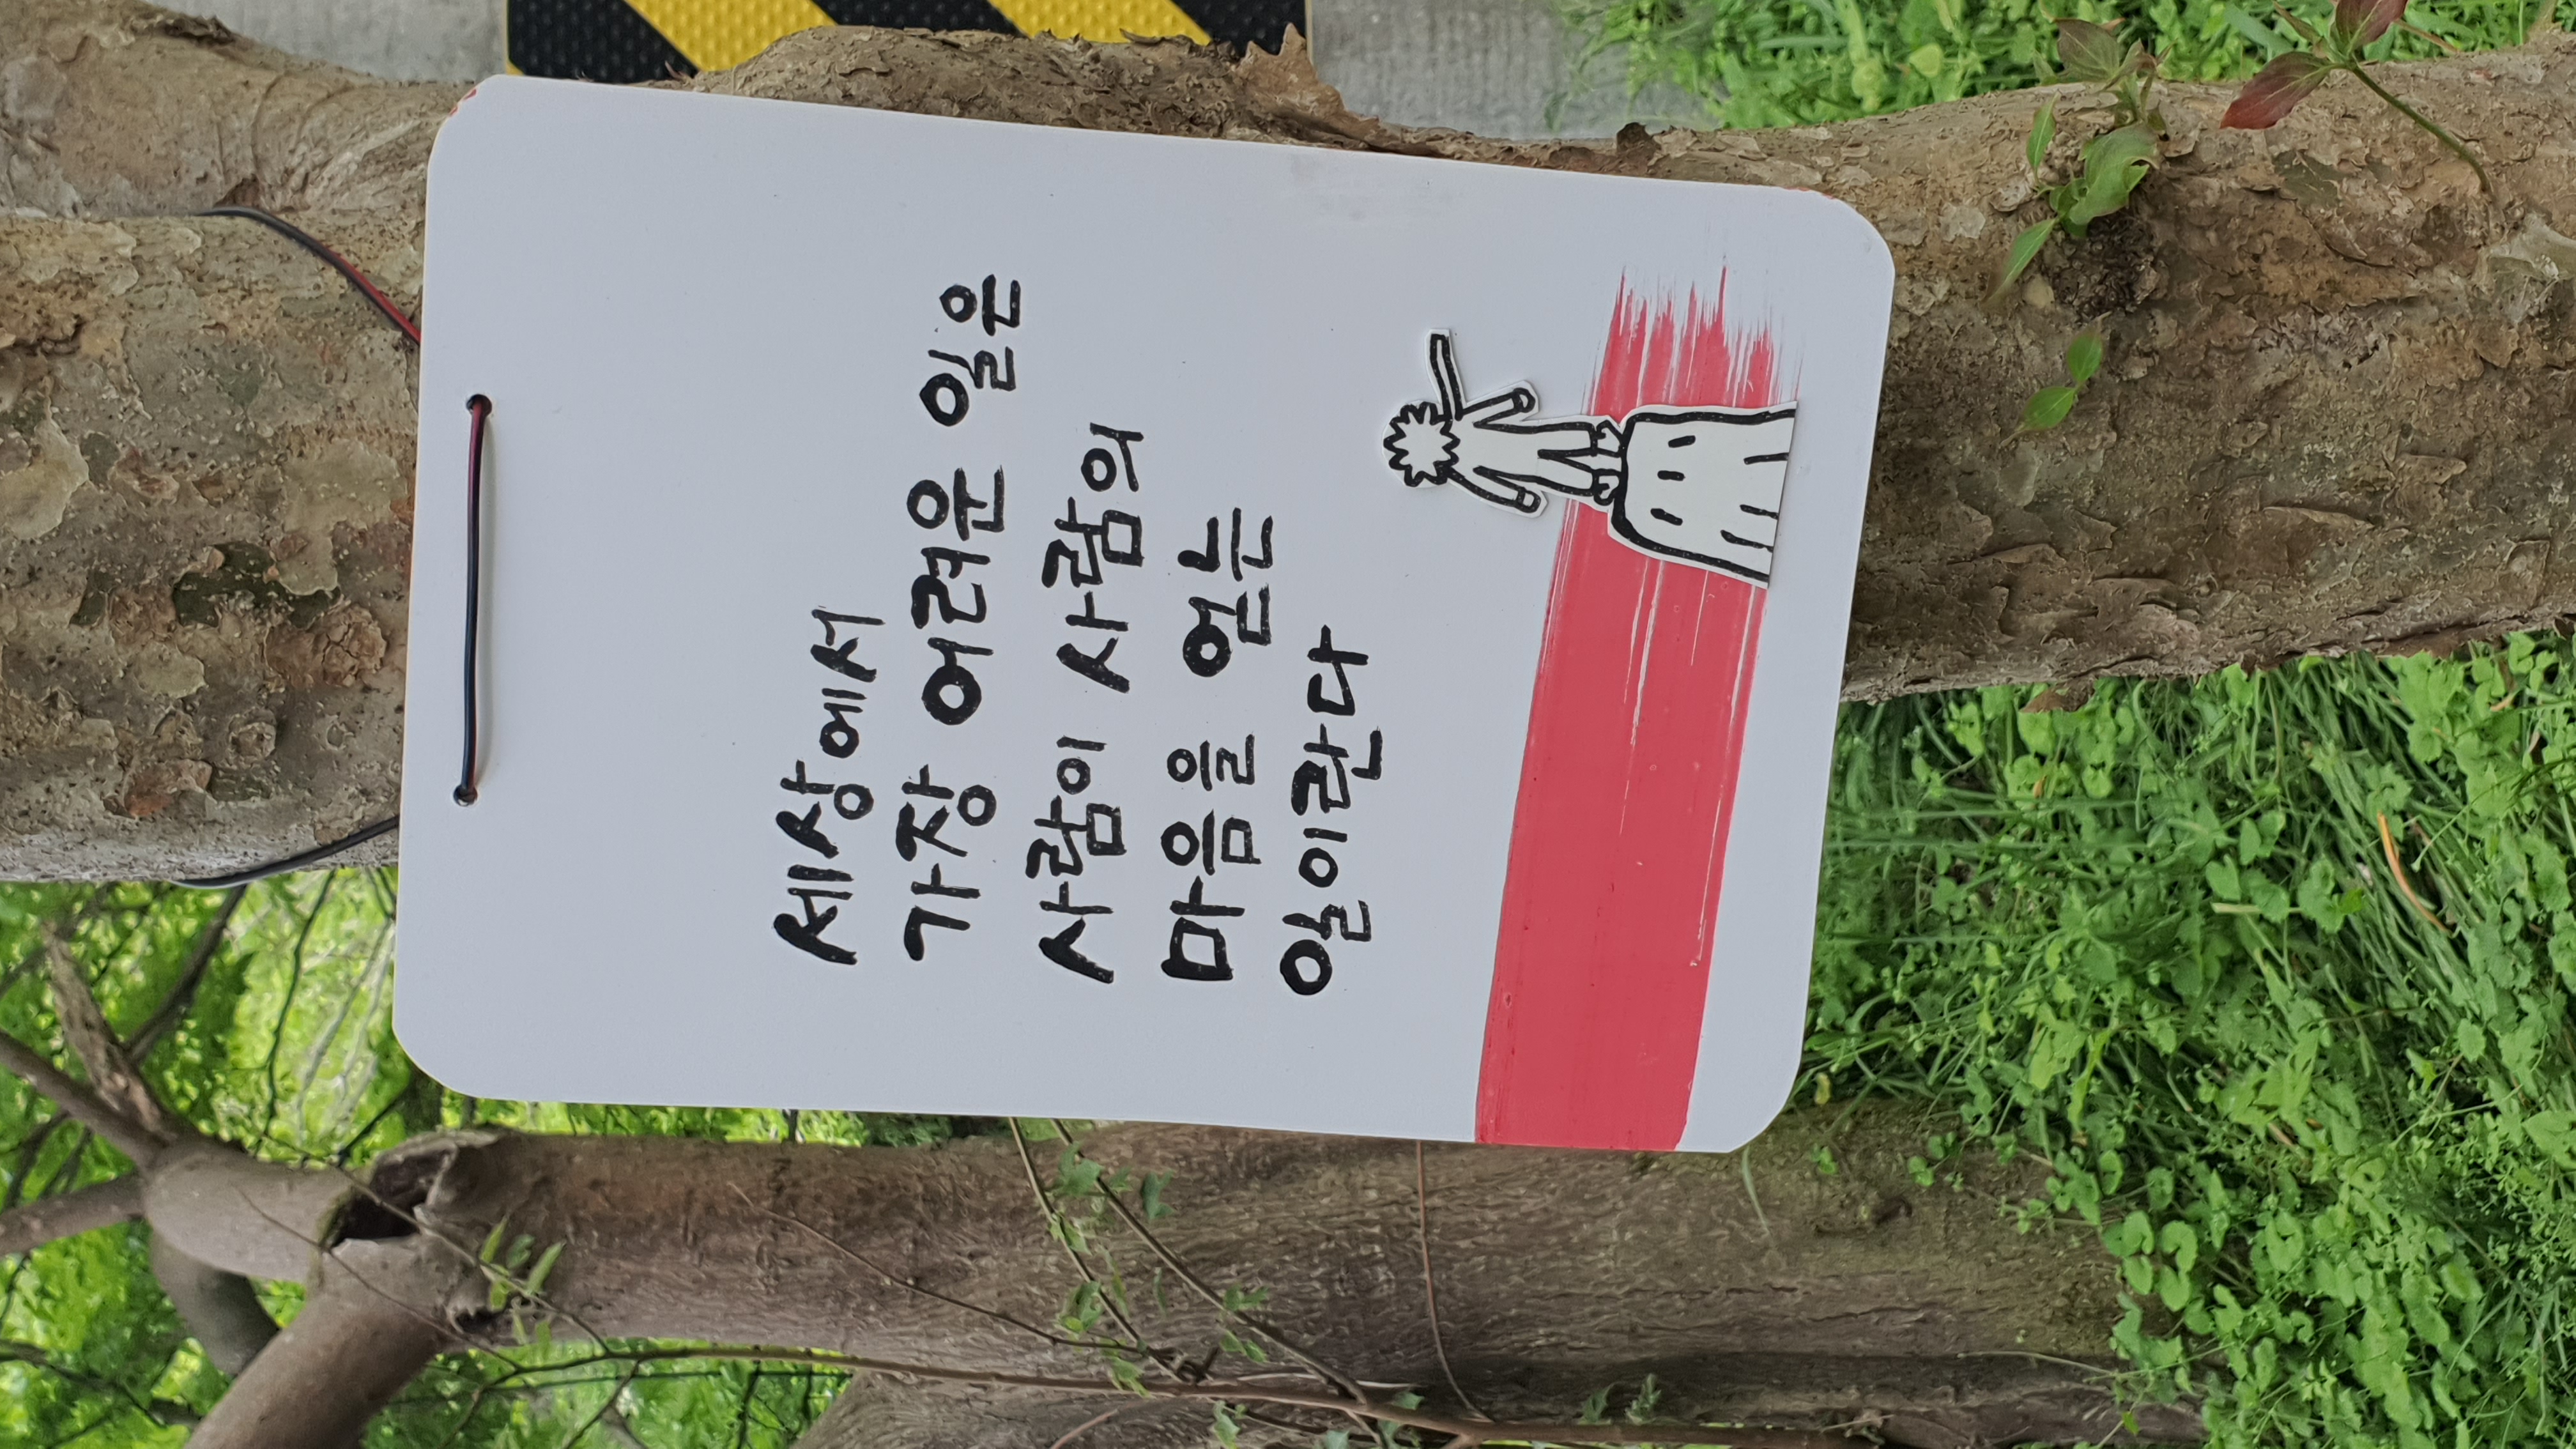 세상에서
가장 어려운 일은
사람이 사람의
마음을 얻는
일이란다